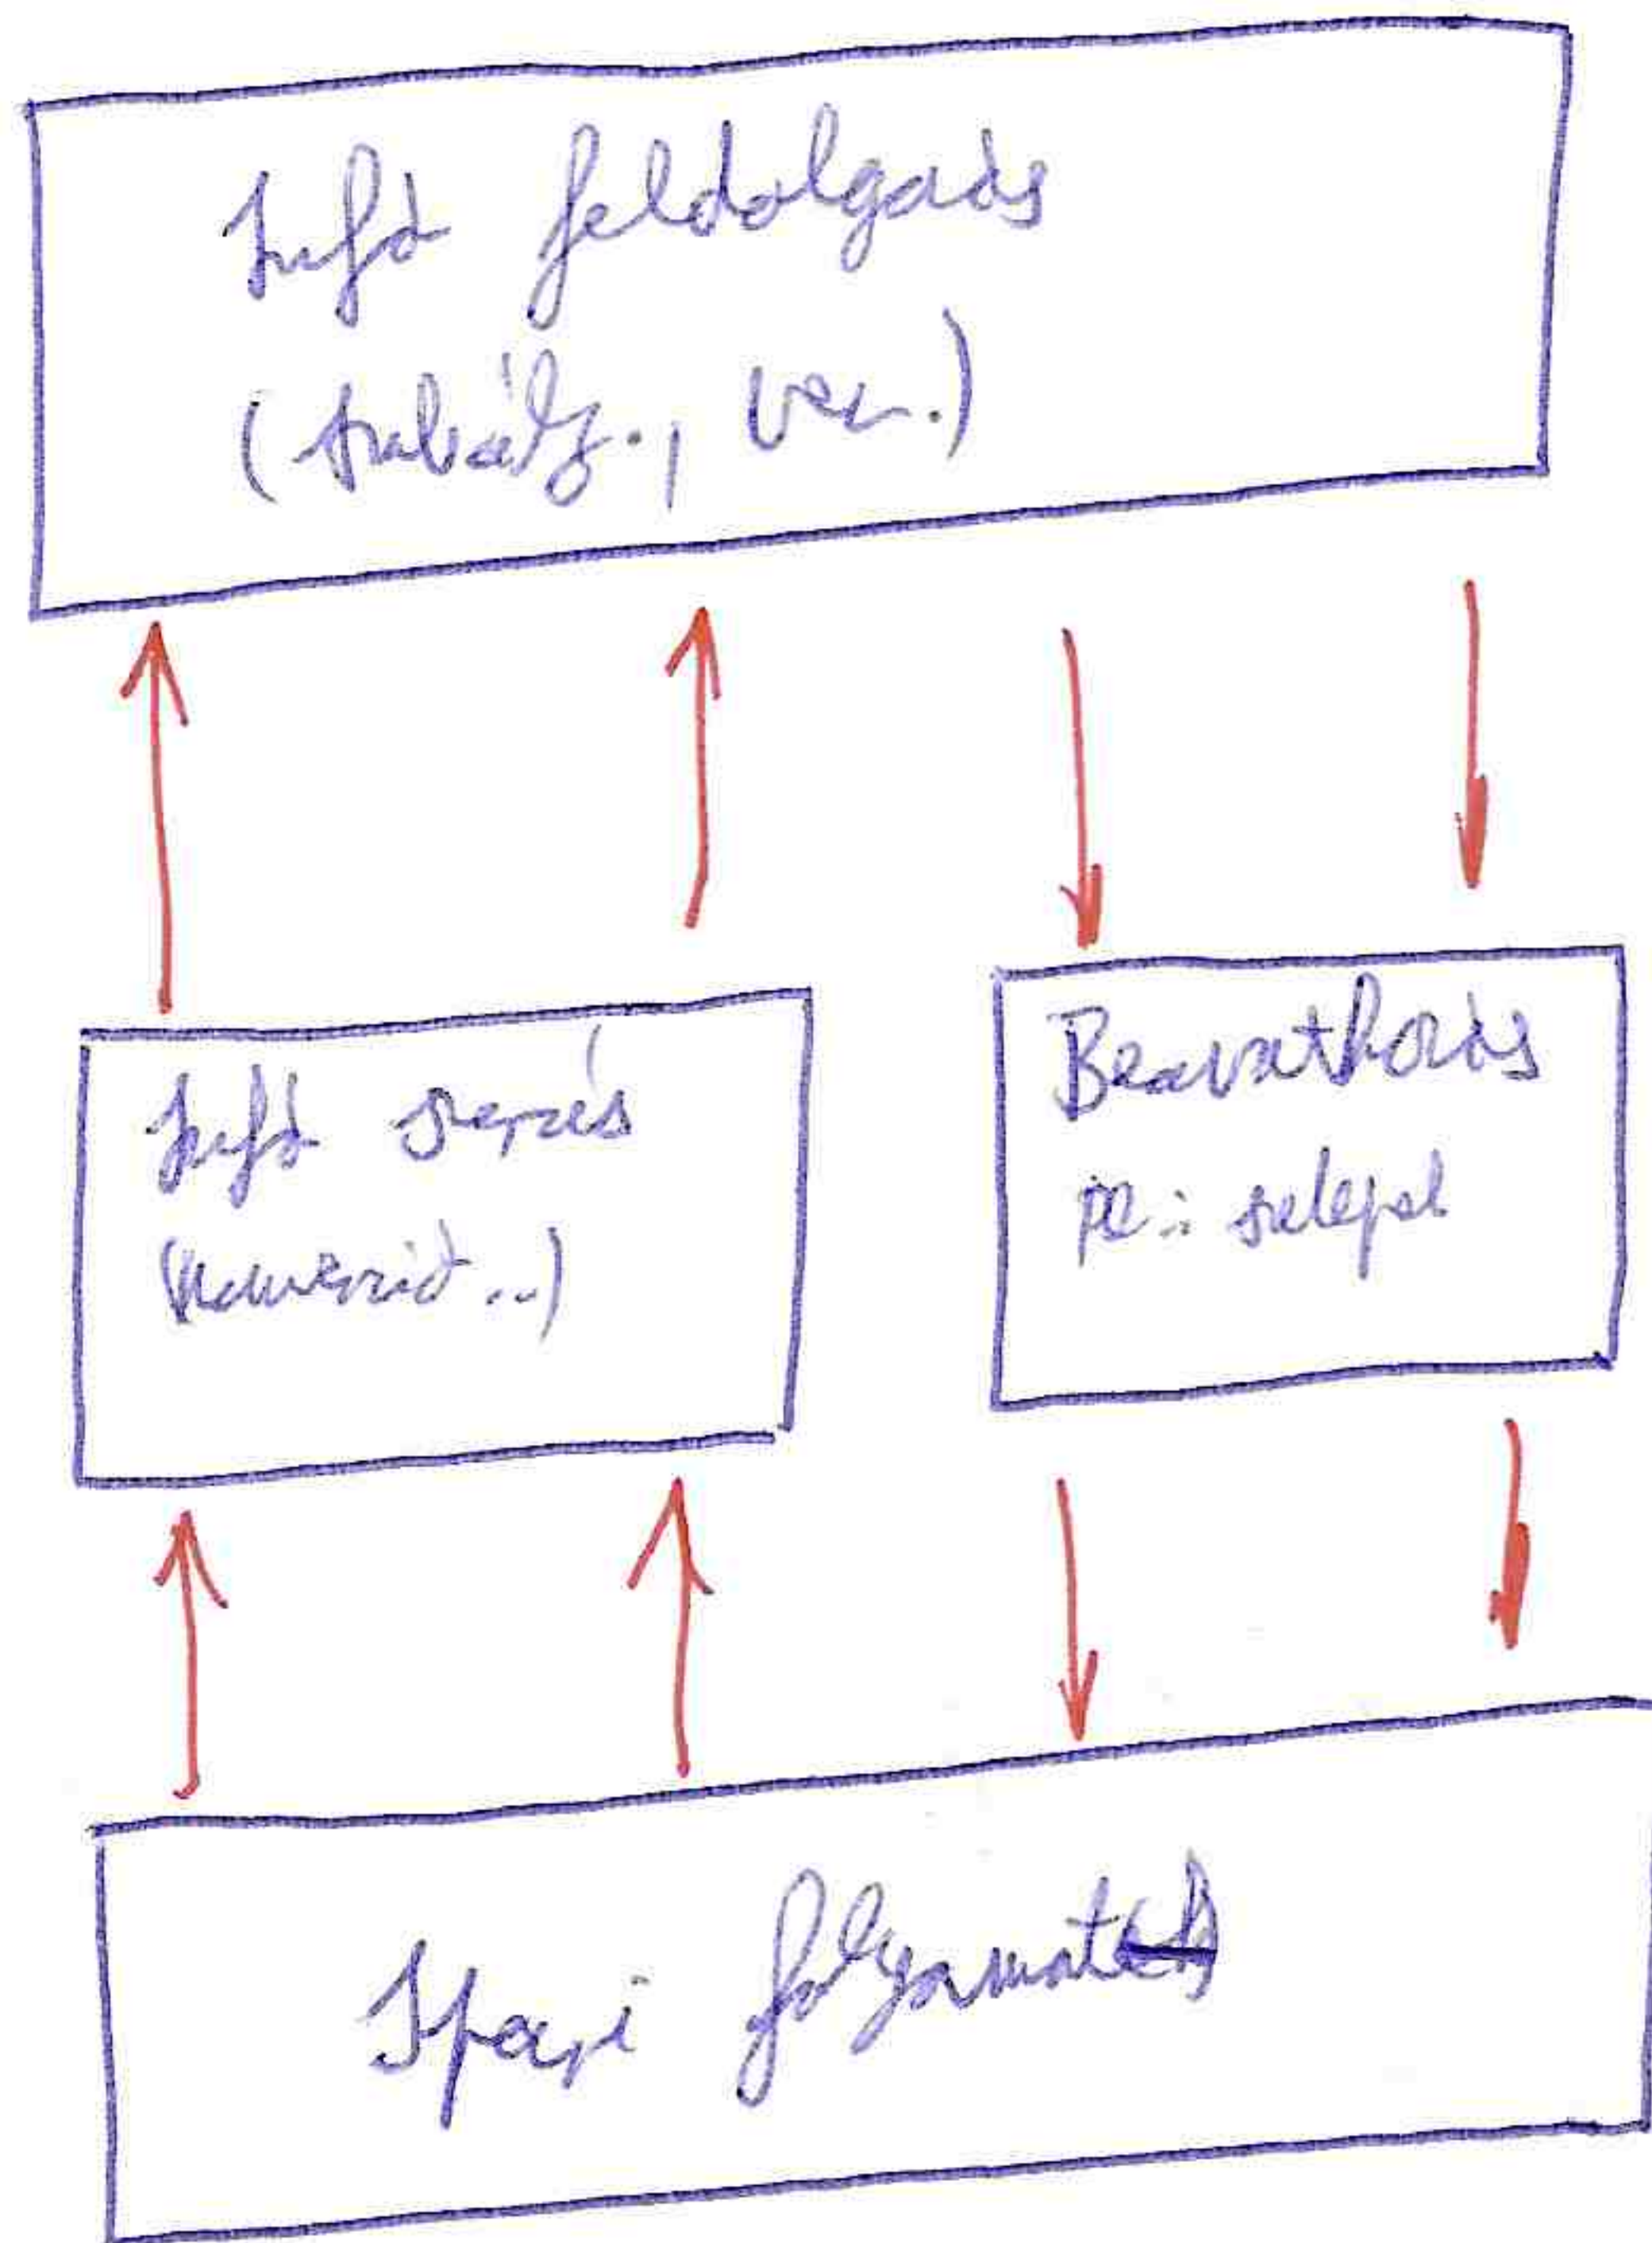 Infó feldolgozás
(szabály., vez.)
Infó szerzés
(hőmérő...)
Beavatkozás
pl: szelepek
Ipari folyamat